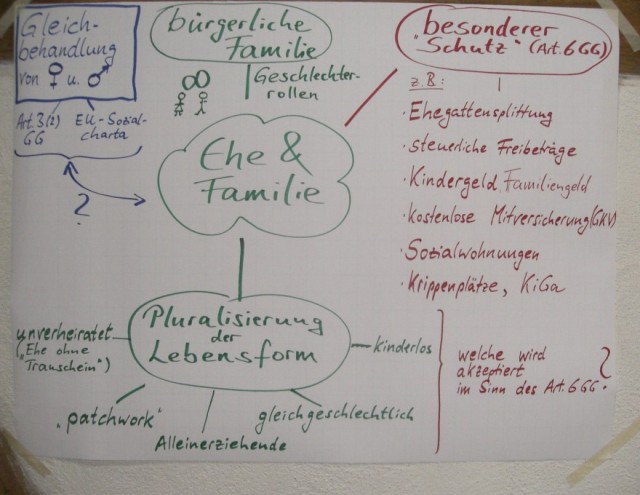 Gleich-
behandlung
von ♀ u. ♂
Art. 3(2)
GG
EU-Sozial-
charta
?
bürgerliche
Familie
Geschlechter-
rollen
Ehe &
Familie
besonderer
"Schutz" (Art. 6 GG)
z.B.:
· Ehegattensplittung
· steuerliche Freibeträge
· Kindergeld, Familiengeld
· kostenlose Mitversicherung (GKV)
· Sozialwohnungen
· Krippenplätze, KiGa
Pluralisierung
der
Lebensform
unverheiratet
("Ehe ohne
Trauschein")
"patchwork"
Alleinerziehende
gleichgeschlechtlich
kinderlos
welche wird
akzeptiert
im Sinn des Art. 6 GG?